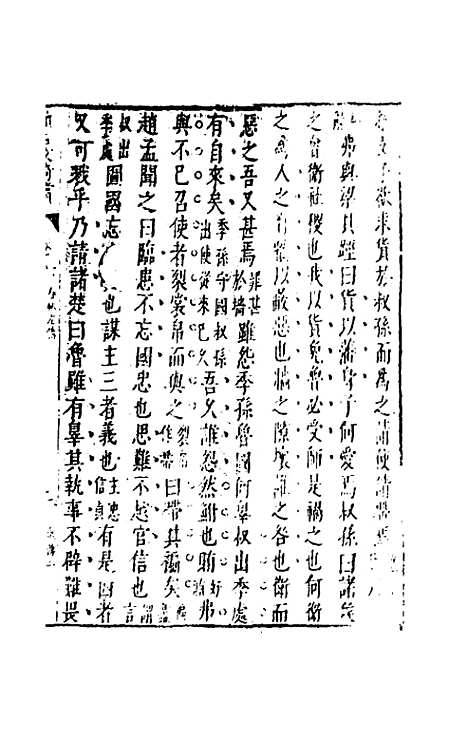 求貨於叔孫而爲之請使請帶焉
弗與梁其踁曰貨以藩身子何愛焉叔孫曰諸侯
之會衛社稷也我以貨免魯必受師是禍之也何衛
之爲人之有牆以蔽惡也牆之隙壞誰之咎也衛而
惡之吾又甚焉罪甚於牆雖怨季孫魯國何辠叔出季處
有自來矣季孫守國叔孫出使從來已久吾又誰怨然鮒也賄弗
與不已召使者裂裳帛而與之裂裳作帶曰帶其褊矣
趙孟聞之曰臨患不忘國忠也思難不越官信也謂言
叔出季處圖國忘死貞也謀主三者義也主忠信貞有是四者
又可戮乎乃請諸楚曰魯雖有辠其執事不辟難畏